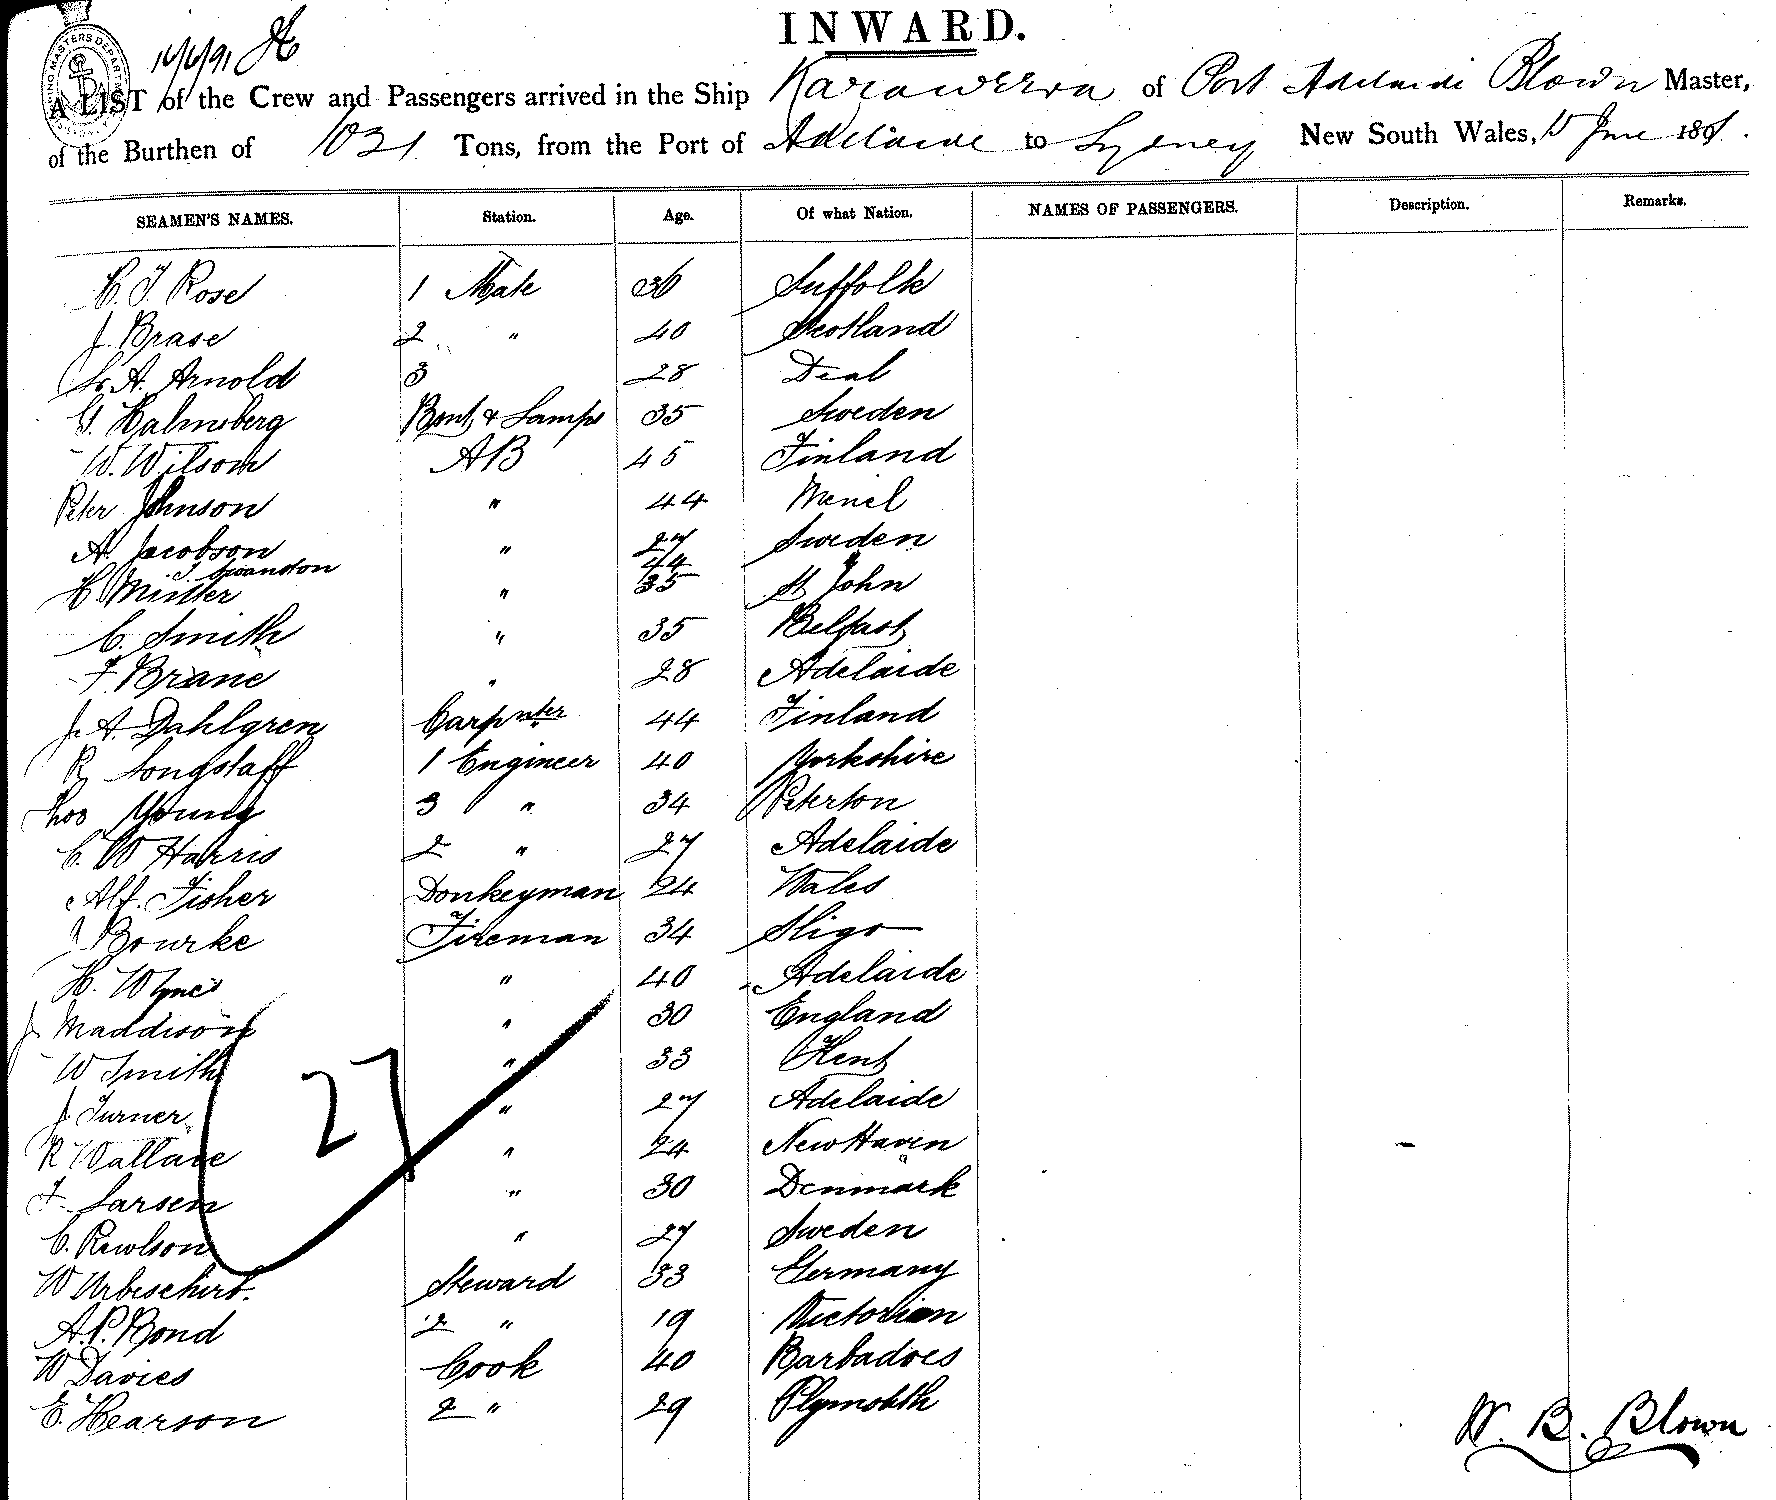 INWARD.
A LIST of the Crew and Passengers arrived in the Ship Karaweera of Port Adelaide Blown Master,
of the Burthen of 1031 Tons, from the Port of Adelaide to Sydney New South Wales, 15 June 1891.
SEAMEN'S NAMES. Station. Age. Of what Nation. NAMES OF PASSENGERS. Description. Remarks.
C. J. Rose 1 Mate 36 Suffolk
J Brase 2 " 40 Scotland
A. Arnold 3 28 Deal
G. Halmsberg Bont & Lamps 35 Sweden
W. Wilsom AB 45 Finland
Peter Johnson " 44
A. Jacobson " 27 Sweden
J. Swanston 44 "
C. Miller " 35 St John
C. Smith " 35 Belfast
F. Brane " 28 Adelaide
J. A. Dahlgren Carpnter 44 Finland
R Longstaff 1 Engineer 40 Yorkshire
Thos Young 3 " 34 Peterton
C. W Harris 2 " 27 Adelaide
Alf. Fisher Donkeyman 24 Wales
J Bourke Fireman 34 Sligo
H. " 40 Adelaide
J. Maddison " 30 England
W Smith " 33 Kent
J Turner " 27 Adelaide
R Wallace " 24 New Haven
F. Larsen " 30 Denmark
C. Rewlson " 27 Sweden
W Urbeschirt. Steward 33 Germany
A. P. Bond 2 " 19 Victorian
W Davies Cook 40 Barbadoes
E. Hearson 2 " 29 Plymouth
27
W. B. Blown